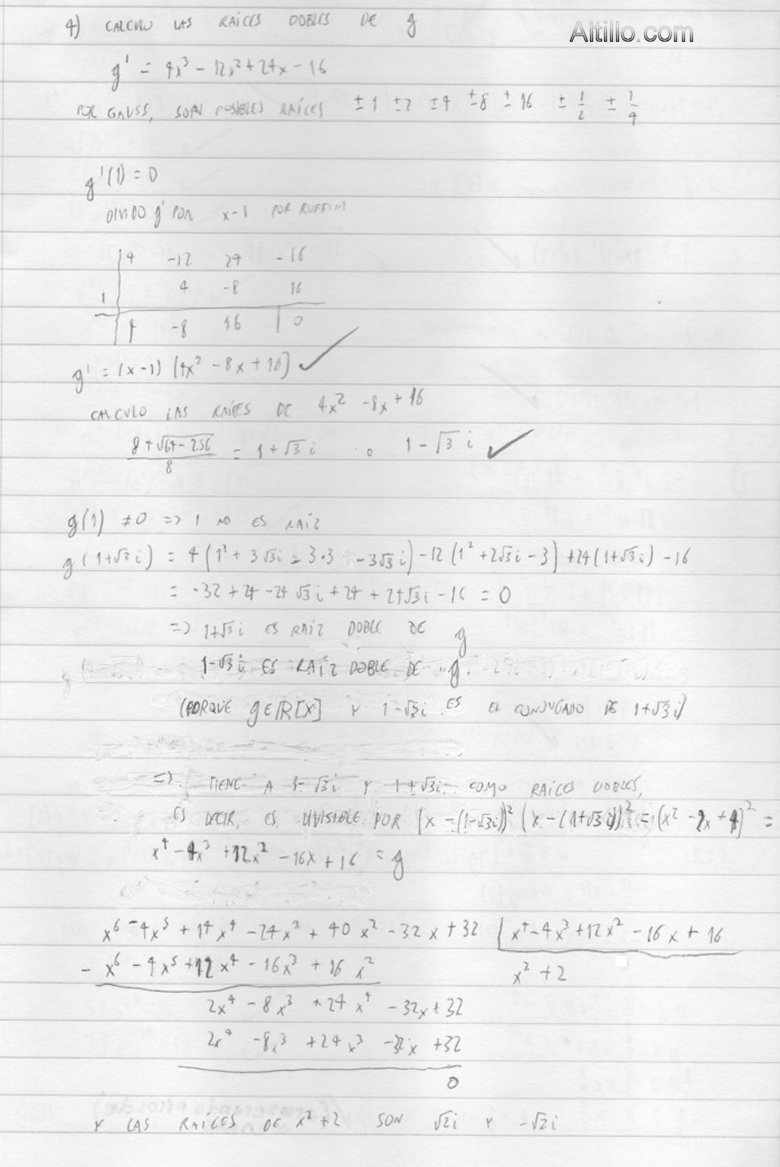 4) CALCULO LAS RAÍCES DOBLES DE g
Altillo.com
g' = 4x³ - 12x² + 24x - 16
POR GAUSS, SON POSIBLES RAÍCES ±1 ±2 ±4 ±8 ±16 ± 1/2 ± 1/4
g'(1) = 0
DIVIDO g' POR x-1 POR RUFFINI
4 -12 24 -16
1 4 -8 16
4 -8 16 | 0
g' = (x-1) (4x² - 8x + 16) ✓
CALCULO LAS RAÍCES DE 4x² - 8x + 16
(8 + √(64 - 256)) / 8 = 1 + √3 i o 1 - √3 i ✓
g(1) ≠ 0 => 1 NO ES RAÍZ
g(1+√3i) = 4(1³ + 3√3i - 3·3 - 3√3i) - 12(1² + 2√3i - 3) + 24(1+√3i) - 16
= -32 + 24 - 24√3i + 24 + 24√3i - 16 = 0
=> 1+√3i ES RAÍZ DOBLE DE g
1-√3i ES RAÍZ DOBLE DE g
(PORQUE g∈ℝ[X] Y 1-√3i ES EL CONJUGADO DE 1+√3i)
=> TIENE A 1-√3i Y 1+√3i COMO RAÍCES DOBLES,
ES DECIR, ES DIVISIBLE POR (x-(1-√3i))² (x-(1+√3i))² = (x² - 2x + 4)² =
x⁴ - 4x³ + 12x² - 16x + 16 = g
x⁶ - 4x⁵ + 14x⁴ - 24x³ + 40x² - 32x + 32 | x⁴ - 4x³ + 12x² - 16x + 16
- x⁶ - 4x⁵ + 12x⁴ - 16x³ + 16x² x² + 2
2x⁴ - 8x³ + 24x⁴ - 32x + 32
2x⁴ - 8x³ + 24x³ - 32x + 32
0
Y LAS RAÍCES DE x² + 2 SON √2i Y -√2i